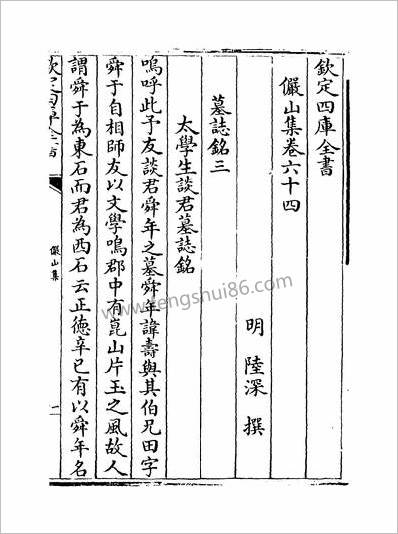 欽定四庫全書
儼山集卷六十四
明 陸深 撰
墓誌銘三
太學生談君墓誌銘
嗚呼此予友談君舜年之墓舜年諱壽與其伯兄田字
舜于自相師友以文學鳴郡中有崑山片玉之風故人
謂舜于為東石而君為西石云正德辛巳有以舜年名
儼山集
www.fengshui86.com